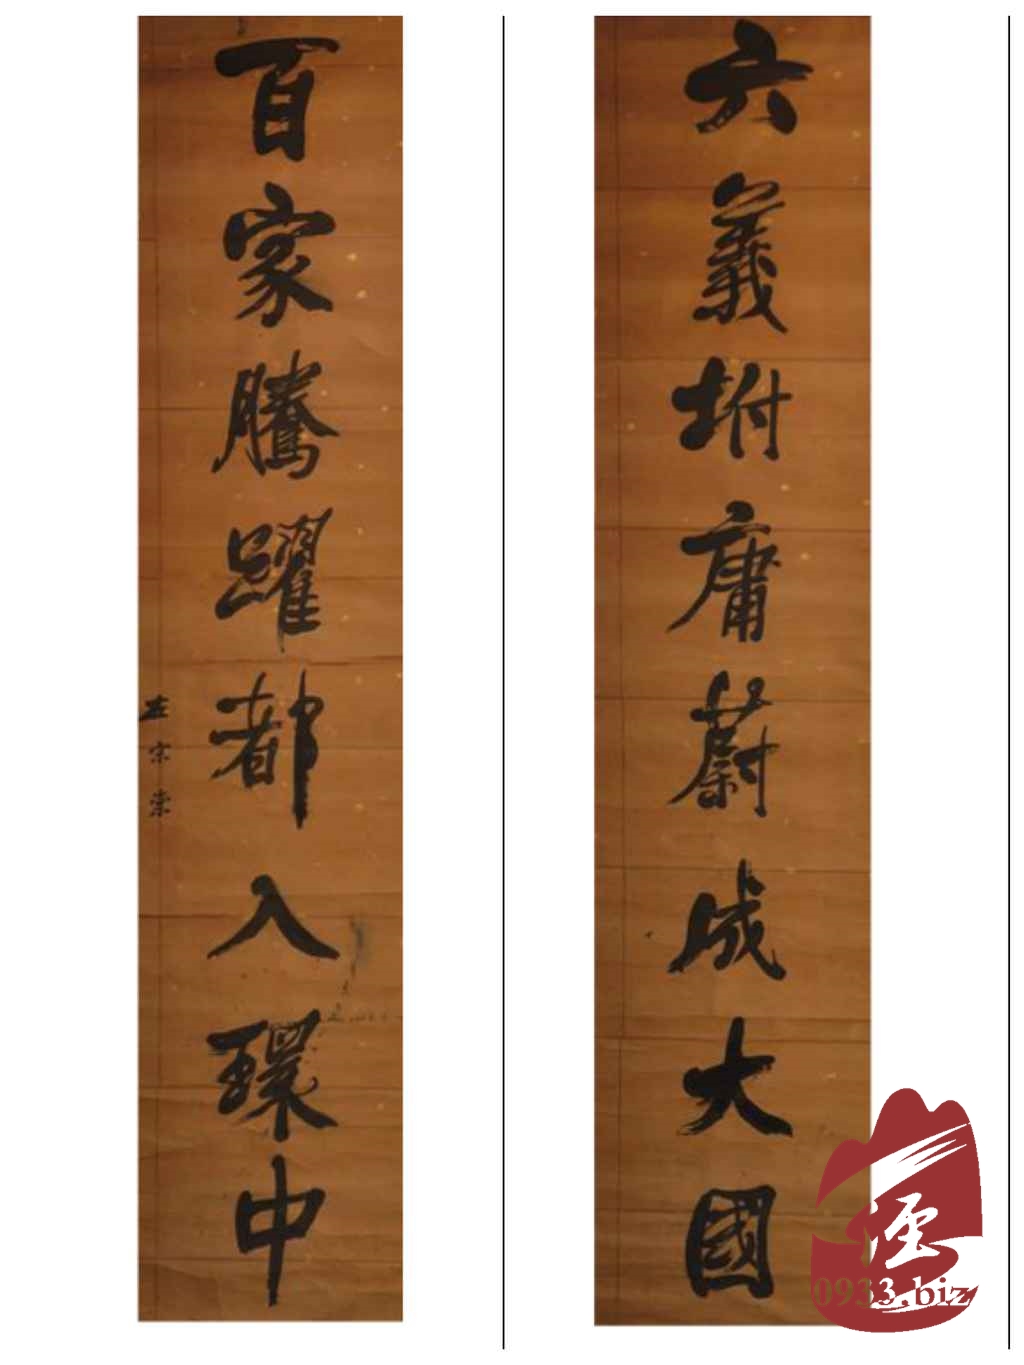 六義坿庸蔚成大國
百家騰躍都入環中
左宗棠
0933.biz